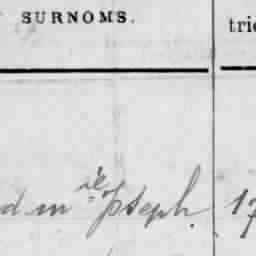 SURNOMS.
trie
d m ie Joseph. 17